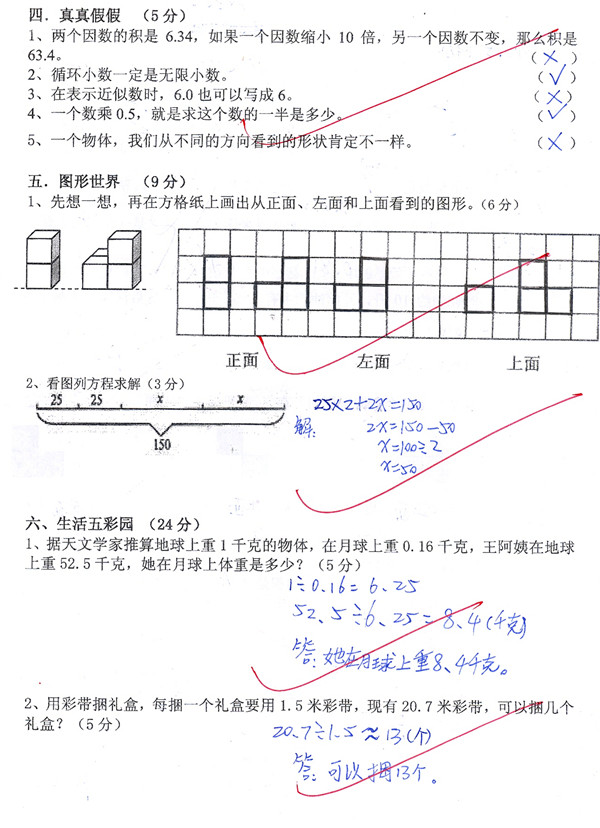 四．真真假假 （5 分）
1、两个因数的积是 6.34，如果一个因数缩小 10 倍，另一个因数不变，那么积是
63.4。 （×）
2、循环小数一定是无限小数。 （√）
3、在表示近似数时，6.0 也可以写成 6。 （×）
4、一个数乘 0.5，就是求这个数的一半是多少。 （√）
5、一个物体，我们从不同的方向看到的形状肯定不一样。 （×）
五．图形世界 （9 分）
1、先想一想，再在方格纸上画出从正面、左面和上面看到的图形。（6 分）
正面 左面 上面
2、看图列方程求解（3 分）
25 25 x x
150
25×2+2x=150
解： 2x=150-50
x=100÷2
x=50
六、生活五彩园 （24 分）
1、据天文学家推算地球上重 1 千克的物体，在月球上重 0.16 千克，王阿姨在地球
上重 52.5 千克，她在月球上体重是多少？（5 分）
1÷0.16=6.25
52.5÷6.25=8.4(千克)
答：她在月球上重8.4千克。
2、用彩带捆礼盒，每捆一个礼盒要用 1.5 米彩带，现有 20.7 米彩带，可以捆几个
礼盒？（5 分）
20.7÷1.5≈13(个)
答：可以捆13个。